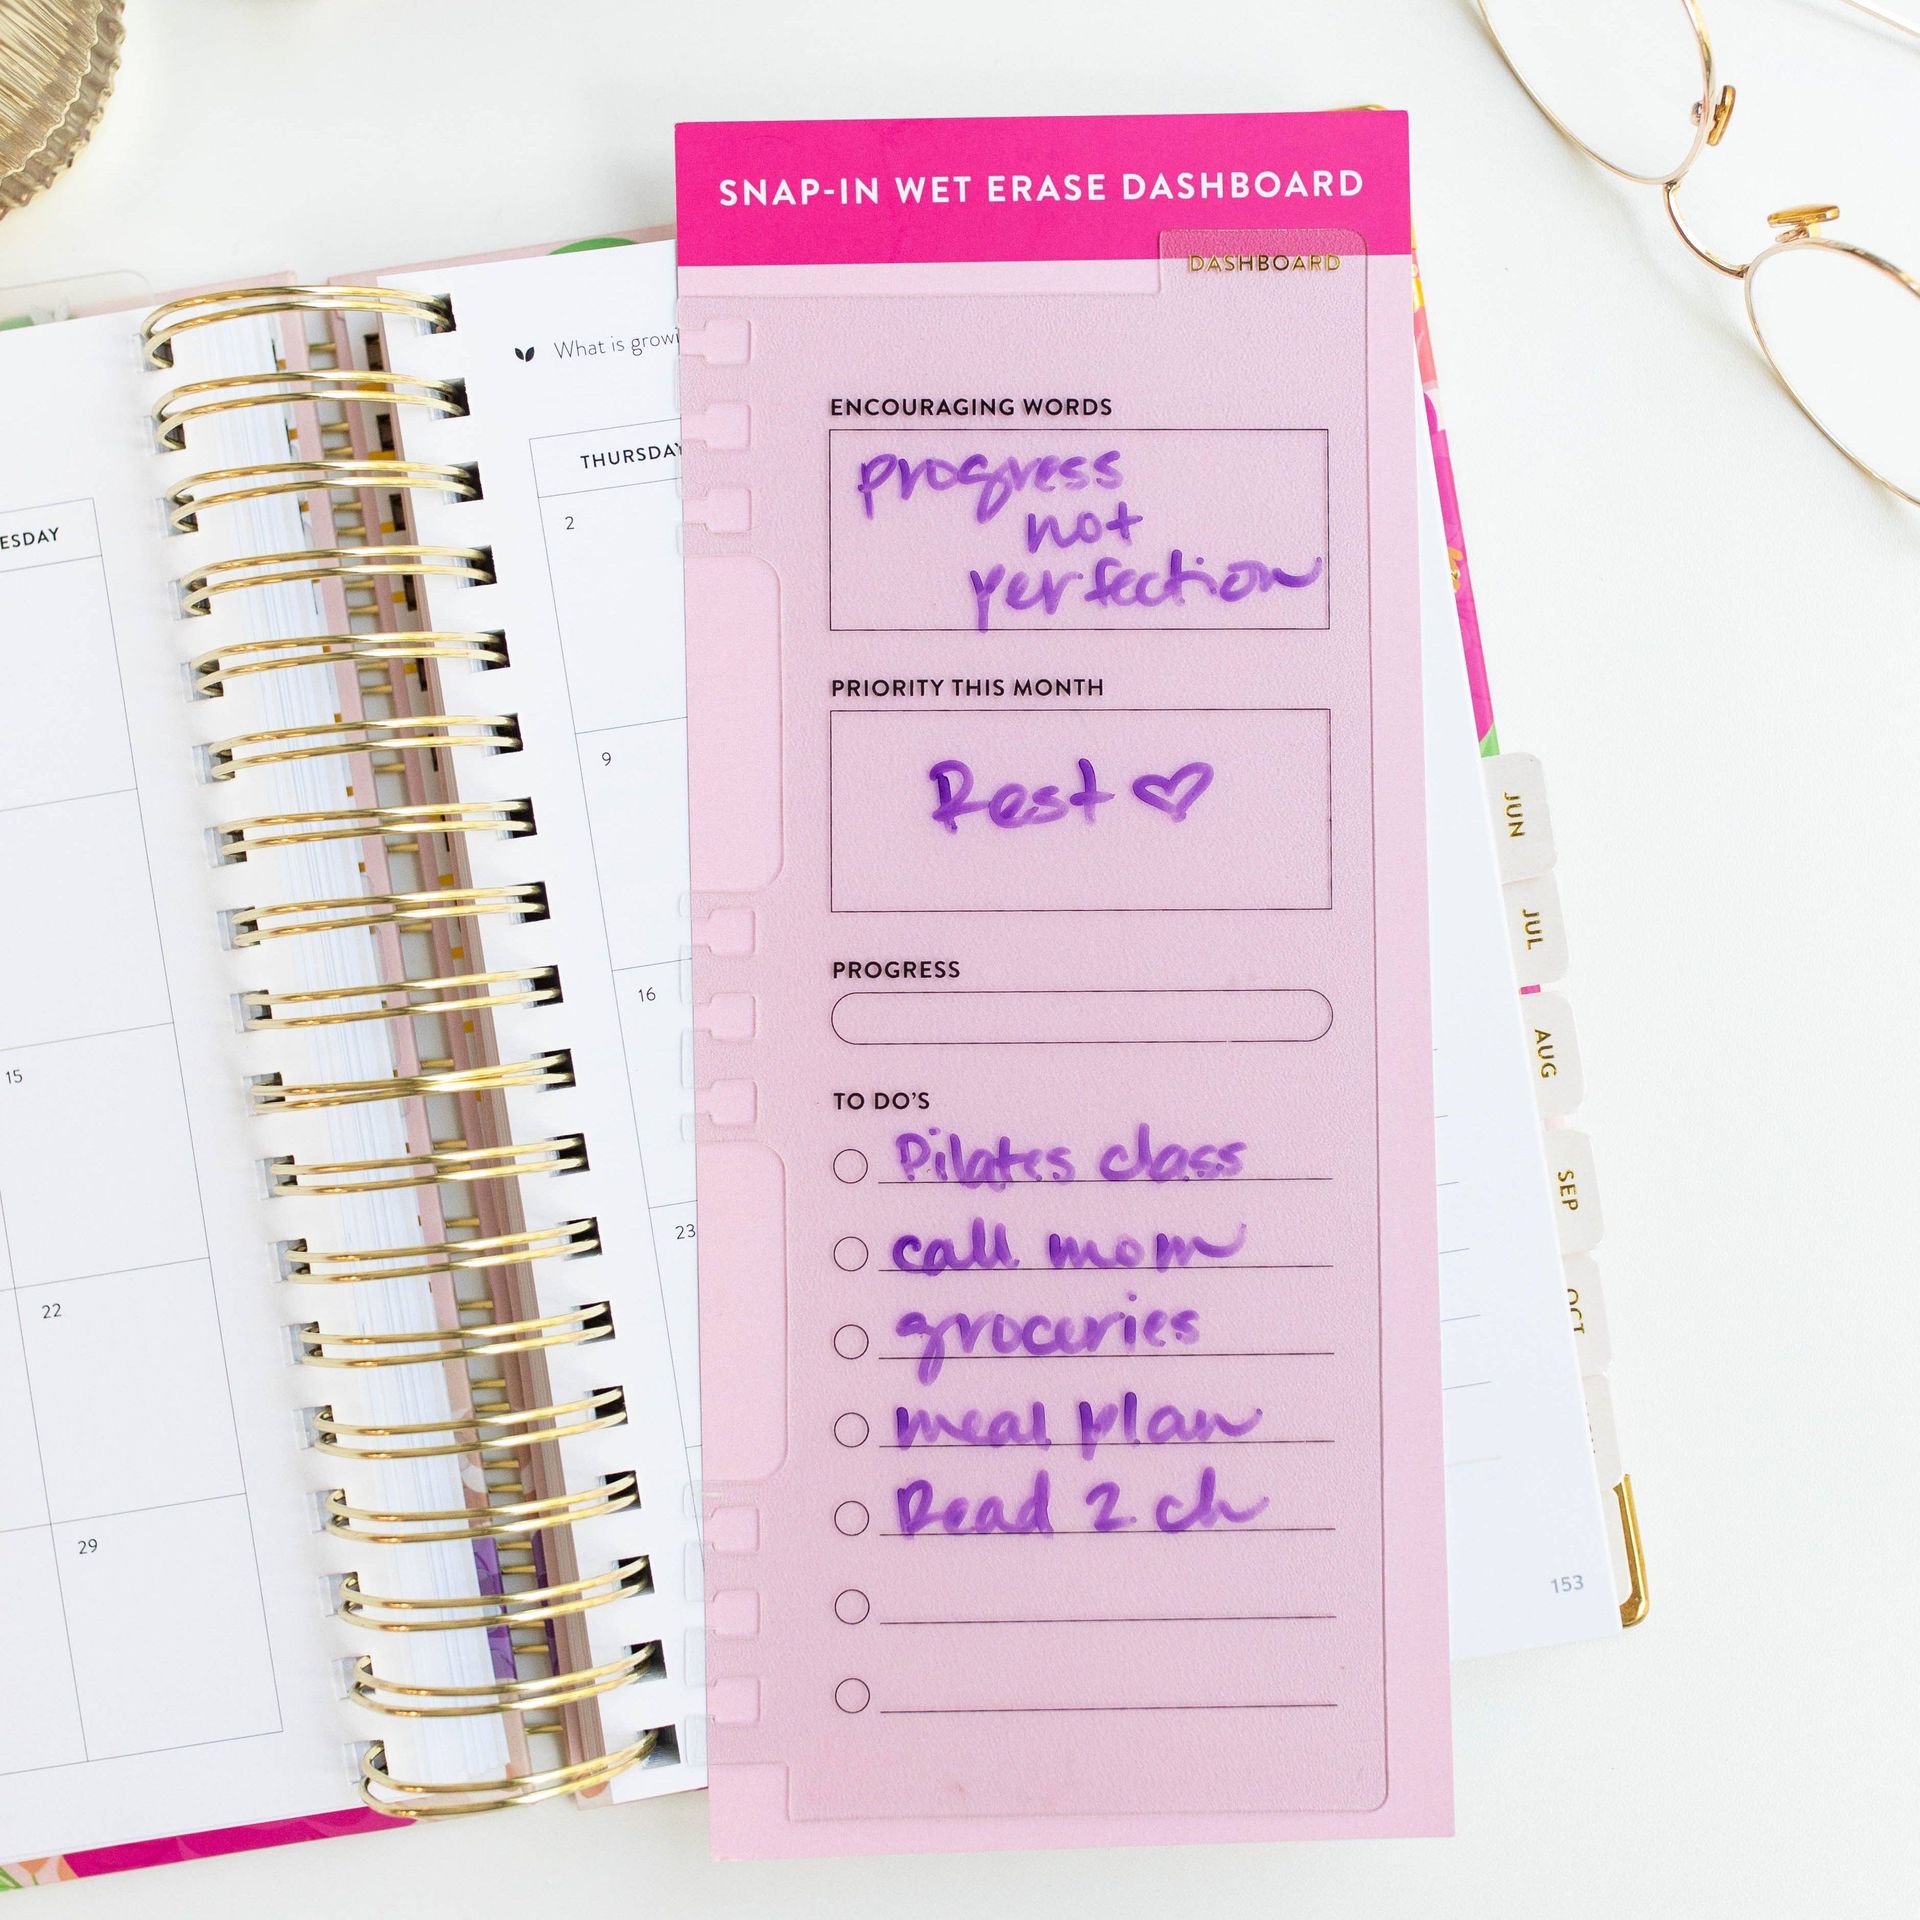 SNAP-IN WET ERASE DASHBOARD
DASHBOARD
ENCOURAGING WORDS
progress
not
perfection
PRIORITY THIS MONTH
Rest ♡
PROGRESS
TO DO'S
Pilates class
call mom
groceries
meal plan
Read 2 ch
What is growi
ESDAY
15
22
29
THURSDAY
2
9
16
23
JUN
JUL
AUG
SEP
OCT
153